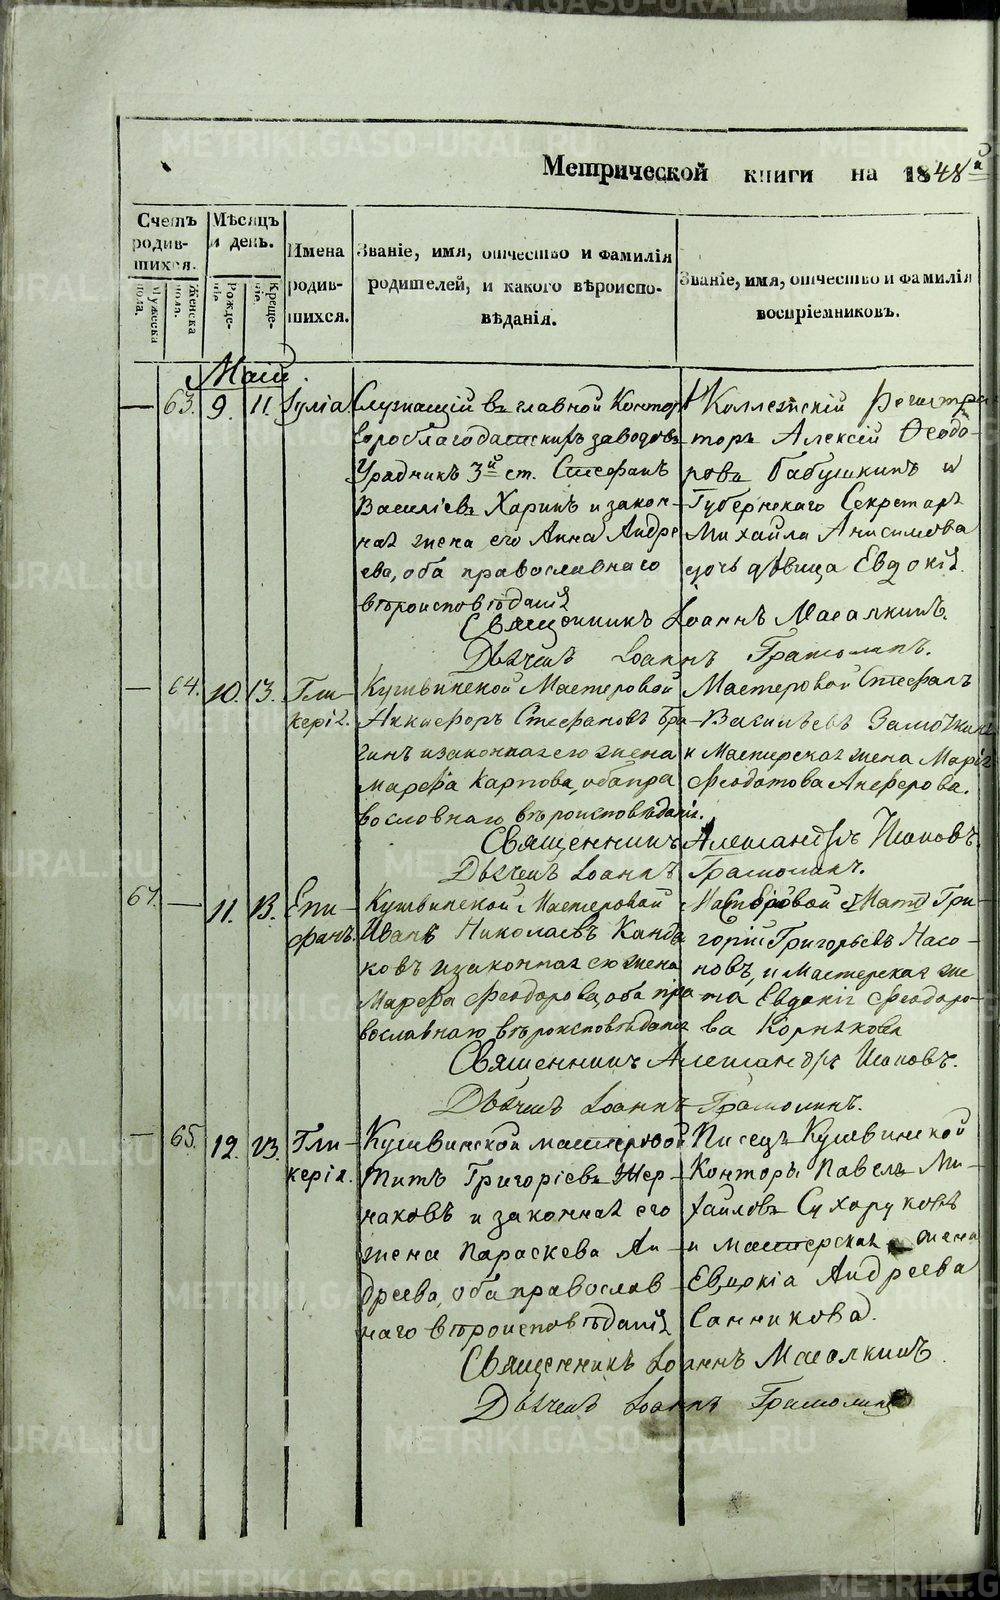 METRIKI.GASO-URAL.RU
Метрической книги на 1848й
Счетъ родив-шихся.
Мѣсяцъ и день.
Имена родив-шихся.
Званіе, имя, отчество и фамилія родителей, и какого вѣроиспо-вѣданія.
Званіе, имя, отчество и фамилія воспріемниковъ.
Мужеска пола.
Женска пола.
Рожде-нія.
Креще-нія.
Маій.
— 63. 9. 11. Іуліа.
Служащій въ главной Контор
Горобл​агодатскихъ заводовъ
Урядникъ 3й ст. Стефанъ
Василіевъ Харинъ и закон-
ная жена его Анна Андре
ева, оба православнаго
вѣроисповѣданія
Коллежскій Регистра
торъ Алексій Ѳеодо-
ровъ Бабушкинъ и
Губернскаго Секретаря
Михайла Анисимова
дочь дѣвица Евдокія
Священникъ Іоаннъ Масалкинъ.
Дьячекъ Іоаннъ
— 64. 10. 13. Гли-
керія.
Кушвинской Мастеровой
Никифоръ Стефановъ Бра-
гинъ и законная его жена
Марфа Карпова, оба пра
вославнаго вѣроисповѣданія.
Мастеровой Стефанъ
Васильевъ
и Мастерская жена Марія
Феодотова Анферова.
Священникъ Александръ Поповъ.
Дьячекъ Іоаннъ
67. — 11. 13. Епи-
фанъ.
Кушвинской Мастеровой
Иванъ Николаевъ Канда
ковъ и законная его жена
Марфа Феодорова, оба пра
вославнаго вѣроисповѣданія
Мастеровой Гри-
горій Григорьевъ Насо-
новъ, и Мастерская же
на Евдокія Феодоро-
ва Корнякова
Священникъ Александръ Поповъ.
Дьячекъ Іоаннъ
— 65. 12. 13. Гли-
керія.
Кушвинской мастеровой
Титъ Григоріевъ Жер-
наковъ и законная его
жена Параскева Ан-
дреева, оба православ
наго вѣроисповѣданія
Писецъ Кушвинской
Конторы Павелъ Ми-
хайловъ Сухоруковъ
и мастерская жена
Евдокіа Андреева
Санникова.
Священникъ Іоаннъ Масалкинъ
Дьячекъ Іоаннъ